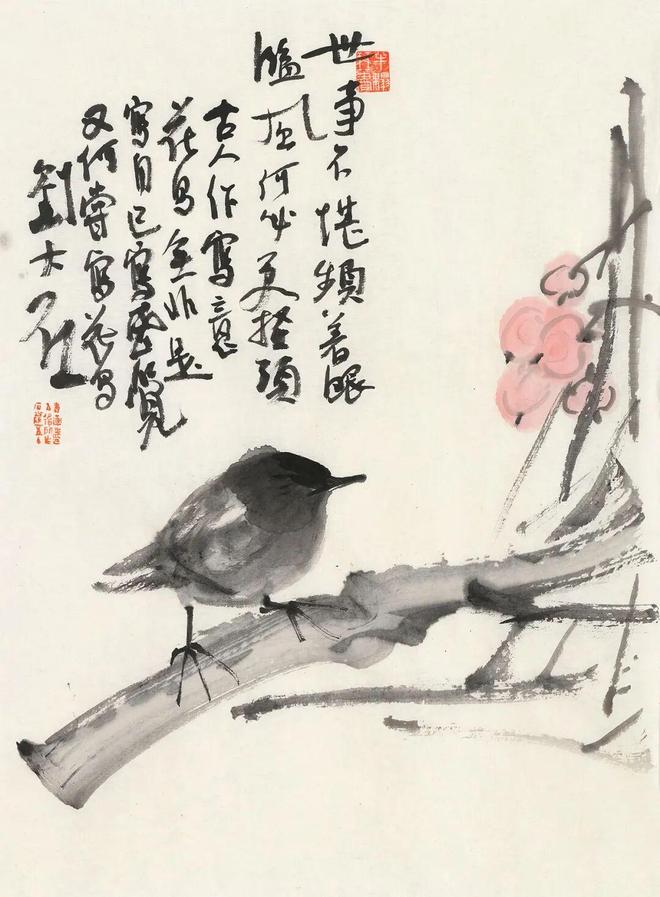 世事不堪頻着眼
何必更頭
古人作寫意
花鳥無非是
寫自己寫感覺
又何嘗寫花鳥
劉大